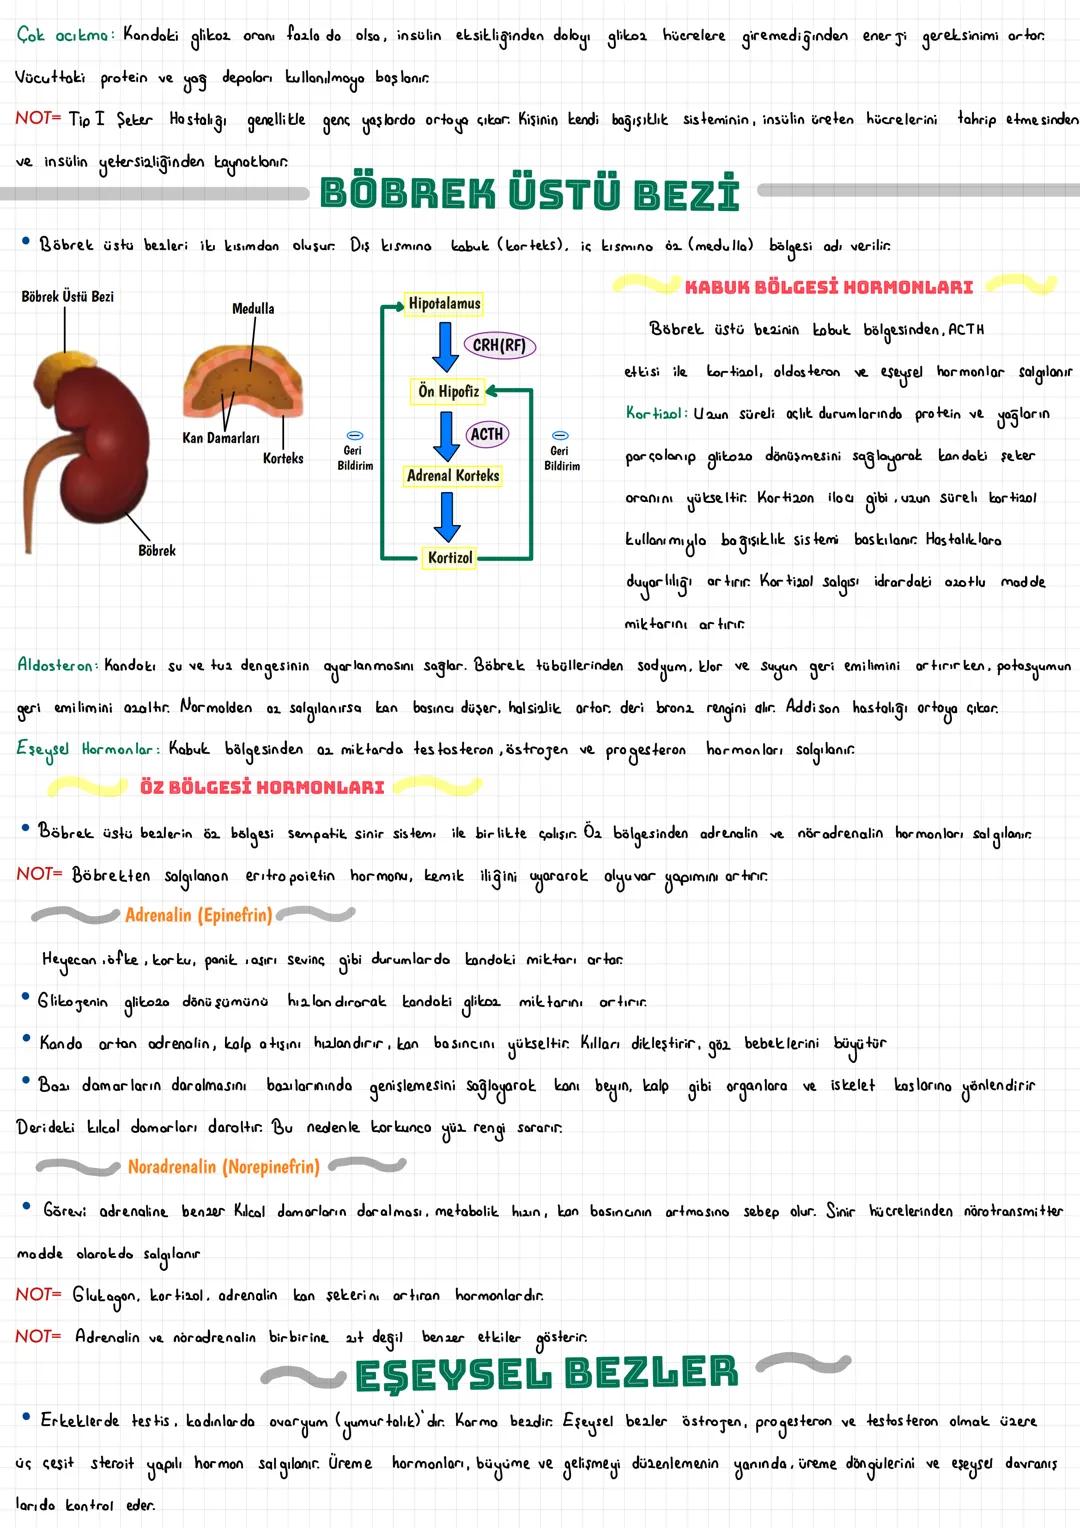 Çok acıkma: Kandaki glikoz oranı fazla da olsa, insülin eksikliğinden dolayı glikoz hücrelere giremediğinden enerji gereksinimi artar.
Vücuttaki protein ve yağ depoları kullanılmaya başlanır.
NOT= Tip I Şeker Hastalığı genellikle genç yaşlarda ortaya çıkar. Kişinin kendi bağışıklık sisteminin, insülin üreten hücrelerini tahrip etmesinden
ve insülin yetersizliğinden kaynaklanır.
BÖBREK ÜSTÜ BEZİ
• Böbrek üstü bezleri iki kısımdan oluşur. Dış kısmına kabuk (korteks), iç kısmına öz (medulla) bölgesi adı verilir.
Böbrek Üstü Bezi
Medulla
Kan Damarları
Korteks
Böbrek
Hipotalamus
CRH(RF)
Ön Hipofiz
ACTH
Geri
Bildirim
Geri
Bildirim
Adrenal Korteks
Kortizol
KABUK BÖLGESİ HORMONLARI
Böbrek üstü bezinin kabuk bölgesinden, ACTH
etkisi ile kortizol, aldosteron ve eşeysel hormonlar salgılanır
Kortizol: Uzun süreli açlık durumlarında protein ve yağların
parçalanıp glikoza dönüşmesini sağlayarak kandaki şeker
oranını yükseltir. Kortizon ilacı gibi, uzun süreli kortizol
kullanımıyla bağışıklık sistemi baskılanır. Hastalıklara
duyarlılığı artırır. Kortizol salgısı idrardaki azotlu madde
miktarını artırır.
Aldosteron: Kandaki su ve tuz dengesinin ayarlanmasını sağlar. Böbrek tübüllerinden sodyum, klor ve suyun geri emilimini artırırken, potasyumun
geri emilimini azaltır. Normalden az salgılanırsa kan basıncı düşer, halsizlik artar, deri bronz rengini alır. Addison hastalığı ortaya çıkar.
Eşeysel Hormonlar: Kabuk bölgesinden az miktarda testosteron, östrojen ve progesteron hormonları salgılanır.
ÖZ BÖLGESİ HORMONLARI
• Böbrek üstü bezlerin öz bölgesi sempatik sinir sistemi ile birlikte çalışır. Öz bölgesinden adrenalin ve nöradrenalin hormonları salgılanır.
NOT= Böbrekten salgılanan eritropoietin hormonu, kemik iliğini uyararak alyuvar yapımını artırır.
Adrenalin (Epinefrin)
Heyecan, öfke, korku, panik, aşırı sevinç gibi durumlarda kandaki miktarı artar.
• Glikojenin glikoza dönüşümünü hızlandırarak kandaki glikoz miktarını artırır.
• Kanda artan adrenalin, kalp atışını hızlandırır, kan basıncını yükseltir. Kılları dikleştirir, göz bebeklerini büyütür
• Bazı damarların daralmasını bazılarınında genişlemesini sağlayarak kanı beyin, kalp gibi organlara ve iskelet kaslarına yönlendirir
Derideki kılcal damarları daraltır. Bu nedenle korkunca yüz rengi sararır.
Noradrenalin (Norepinefrin)
• Görevi adrenaline benzer Kılcal damarların daralması, metabolik hızın, kan basıncının artmasına sebep olur. Sinir hücrelerinden nörotransmitter
madde olarakda salgılanır
NOT= Glukagon, kortizol, adrenalin kan şekerini artıran hormonlardır.
NOT= Adrenalin ve nöradrenalin birbirine zıt değil benzer etkiler gösterir.
EŞEYSEL BEZLER
• Erkeklerde testis, kadınlarda ovaryum (yumurtalık)'dır. Karma bezdir. Eşeysel bezler östrojen, progesteron ve testosteron olmak üzere
üç çeşit steroit yapılı hormon salgılanır. Üreme hormonları, büyüme ve gelişmeyi düzenlemenin yanında, üreme döngülerini ve eşeysel davranış
larıda kontrol eder.